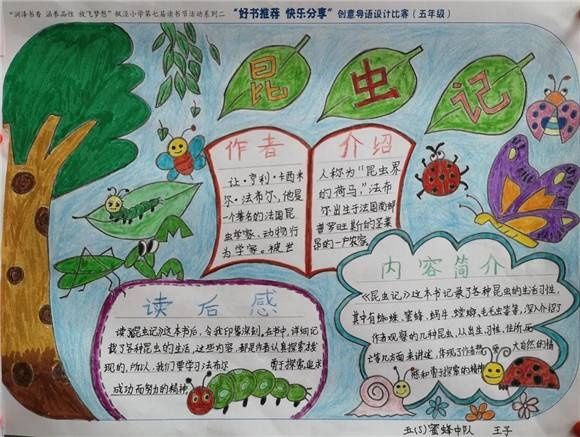 "润泽书香 涵养品性 放飞梦想"枫泾小学第七届读书节活动系列二 "好书推荐 快乐分享" 创意导语设计比赛（五年级）
昆虫记
作者
让·亨利·卡西米
尔·法布尔,他是
一个著名的法国昆
虫学家、动物行
为学家。被世
介绍
人称为“昆虫界
的荷马,”法布
尔出生于法国南部
普罗旺斯的圣莱
昂的一户农家。
读后感
读《昆虫记》这本书后,令我印象深刻,在书中,详细记
载了各种昆虫的生活,这些内容,都是作者认真探索发
现的,所以,我们要学习法布尔
勇于探索,追求
成功而努力的精神
内容简介
《昆虫记》这本书记录了各种昆虫的生活习性,
其中有蜘蛛、蜜蜂、蜗牛、螳螂、毛毛虫等等,深入介绍了
作者观察的几种昆虫,从出生,习性,住所,死
亡等几方面来讲述,体现了作者热
大自然的情
感和勇于探索的精神
五(5)蜜蜂中队 王子